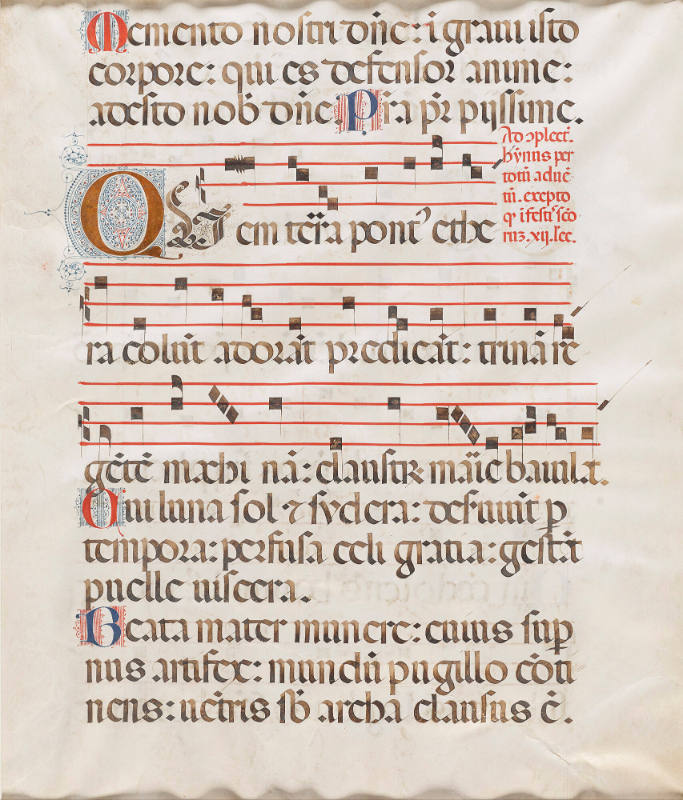 Memento nostri dñe: ĩ graui isto
corpore: qui es defensor anime:
adesto nob̃ dñe. Pr̃a pr̃ pijssime.
Ad cõplect.
hỹnus per
totũ aduẽ
tũ. excepto
ꝙ ĩ festis sco
rũꝫ .xij. lec.
QVem terra pont᾽ ethe
ra colũt adorãt predicãt: trinã re
gẽtẽ machi nã: claustrũ marie baiulat.
Cui luna sol ⁊ sydera: deseruiũt ꝑ
tempora: perfusa celi gratia: gestãt
puelle uiscera.
Beata mater munere: cuius suꝑ
nus artifex: mundũ pugillo cõti
nens: uẽtris sb̃ archa clausus ẽ.